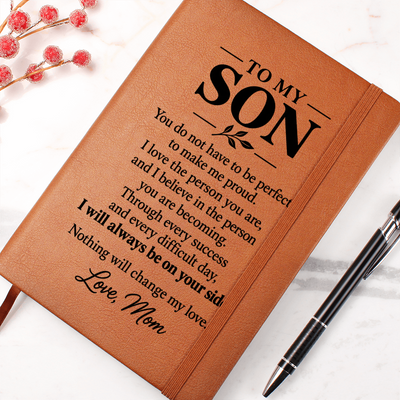 TO MY
SON
You do not have to be perfect
to make me proud.
I love the person you are,
and I believe in the person
you are becoming.
Through every success
and every difficult day,
I will always be on your sid
Nothing will change my love.
Love, Mom